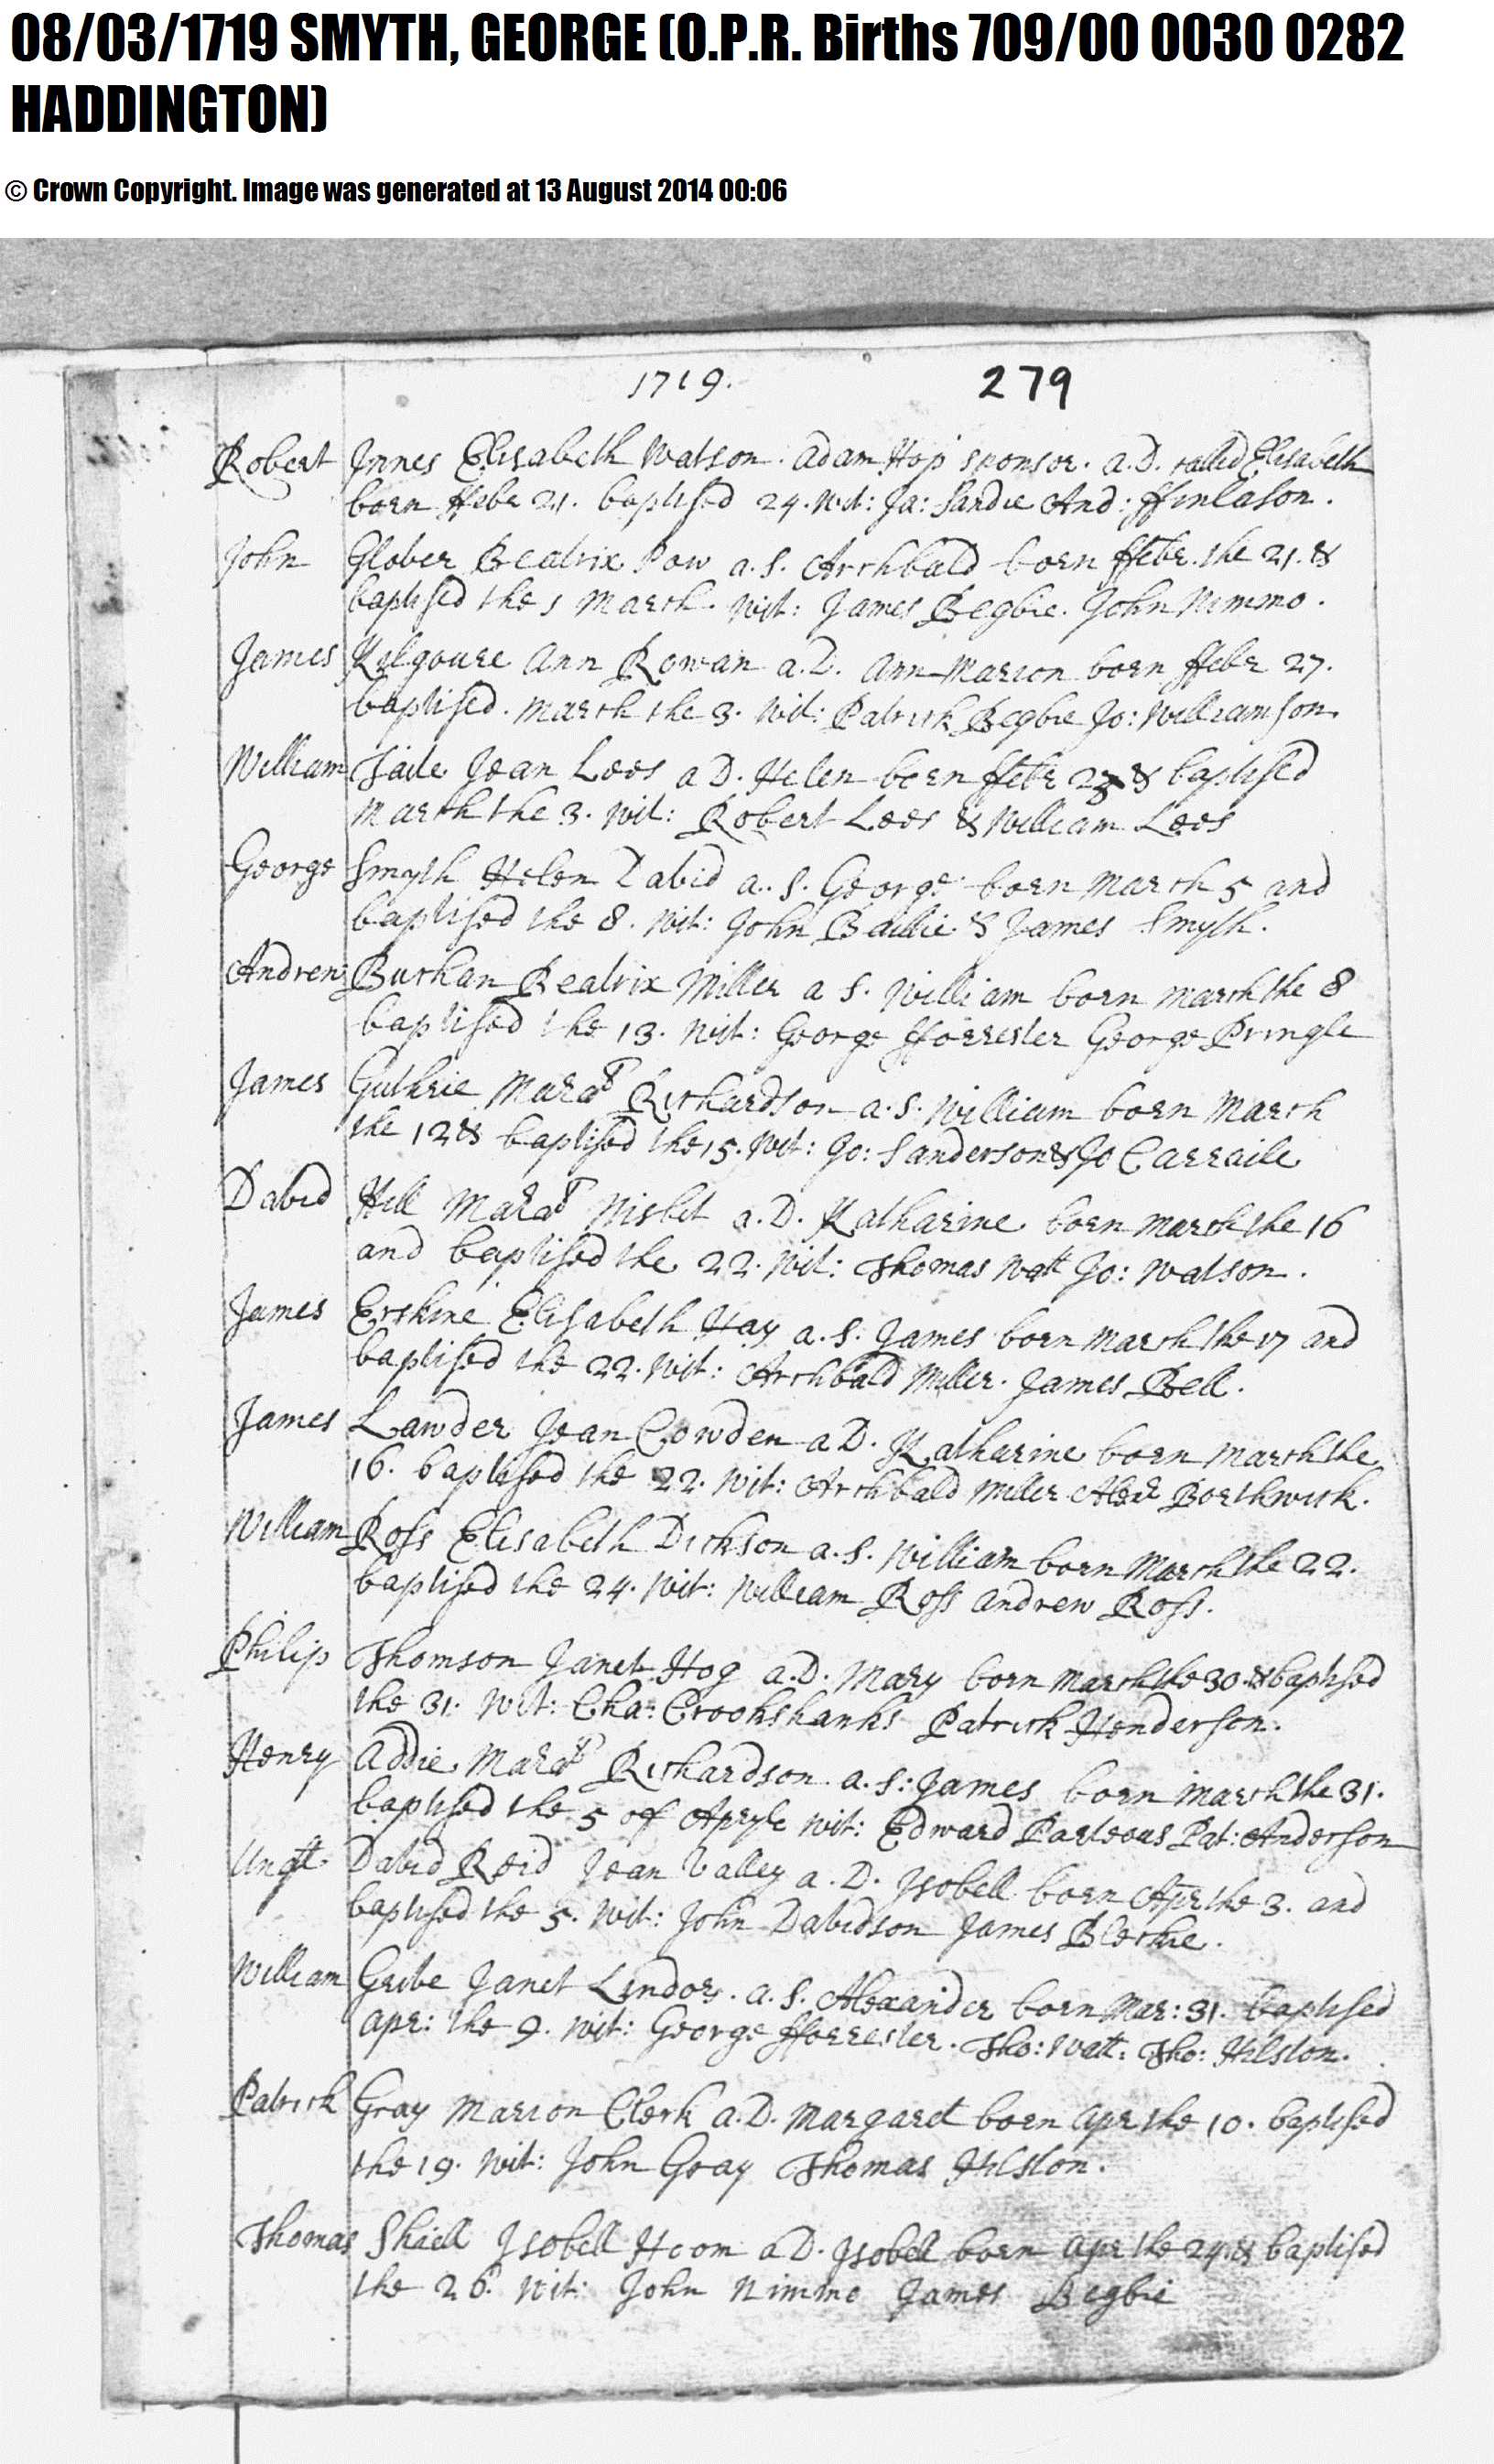 08/03/1719 SMYTH, GEORGE (O.P.R. Births 709/00 0030 0282
HADDINGTON)
© Crown Copyright. Image was generated at 13 August 2014 00:06
1719. 279
Robert Innes Elisabeth Watson. Adam Hop sponsor. a.D. called Elisabeth
born ffebr 21. baptised 24. Wit: Ja: Sandie And: ffinlason.
John Glover Beatrix Pow a.S. Archbald born ffebr. the 21. &
baptised the 1 March. Wit: James Begbie. John Nimmo.
James Kilgoure Ann Rowan a.D. Ann Marion born ffebr 27.
baptised. March the 3. Wit: Patrick Begbie Jo: Williamson.
William Taile Jean Lees a D. Helen born ffebr & baptised
March the 3. Wit: Robert Lees & William Lees
George Smyth Helen David a. S. George born March 5 and
baptised the 8. Wit: John Baillie & James Smyth.
Andrew Buchan Beatrix Miller a S. William born March the 8
baptised the 13. Wit: George fforrester George Pringle
James Guthrie Marat Richardson a. S. William born March
the 12 & baptised the 15. Wit: Jo: Sanderson & Jo Carraile
David Hill Marat Nisbet a. D. Katharine born March the 16
and baptised the 22. Wit: Thomas Watt Jo: Watson.
James Erskine Elisabeth Hay a. S: James born March the 17 and
baptised the 22. Wit: Archbald Miller. James Bell.
James Lawder Jean Cowden a D. Katharine born March the
16. baptised the 22. Wit: Archbald Miller Alexr Borthwick.
William Ross Elisabeth Dickson a. S. William born March the 22.
baptised the 24. Wit: William Ross Andrew Ross.
Philip Thomson Janet Hog a. D. Mary born March the 30. & baptised
the 31. Wit: Cha: Crookshanks Patrick Henderson.
Henry Addie Marat Richardson a. S: James born March the 31.
baptised the 5 of Apryle Wit: Edward Parteous Pat: Anderson
Unqll David Reid Jean Valley a. D. Isobell born Apr the 3. and
baptised the 5. Wit: John Davidson James Blechie.
William Grive Janet Lindors. a. S. Alexander born Mar: 31. baptised
Apr: the 9. Wit: George fforrester. Tho: Watt. Tho: Hilston.
Patrick Gray Marion Clerk a. D. Margaret born Apr the 10. baptised
the 19. Wit: John Gray Thomas Hilston.
Thomas Shiell Isobell Hoom a D. Isobell born Apr the 24 & baptised
the 26. Wit: John Nimmo James Begbie